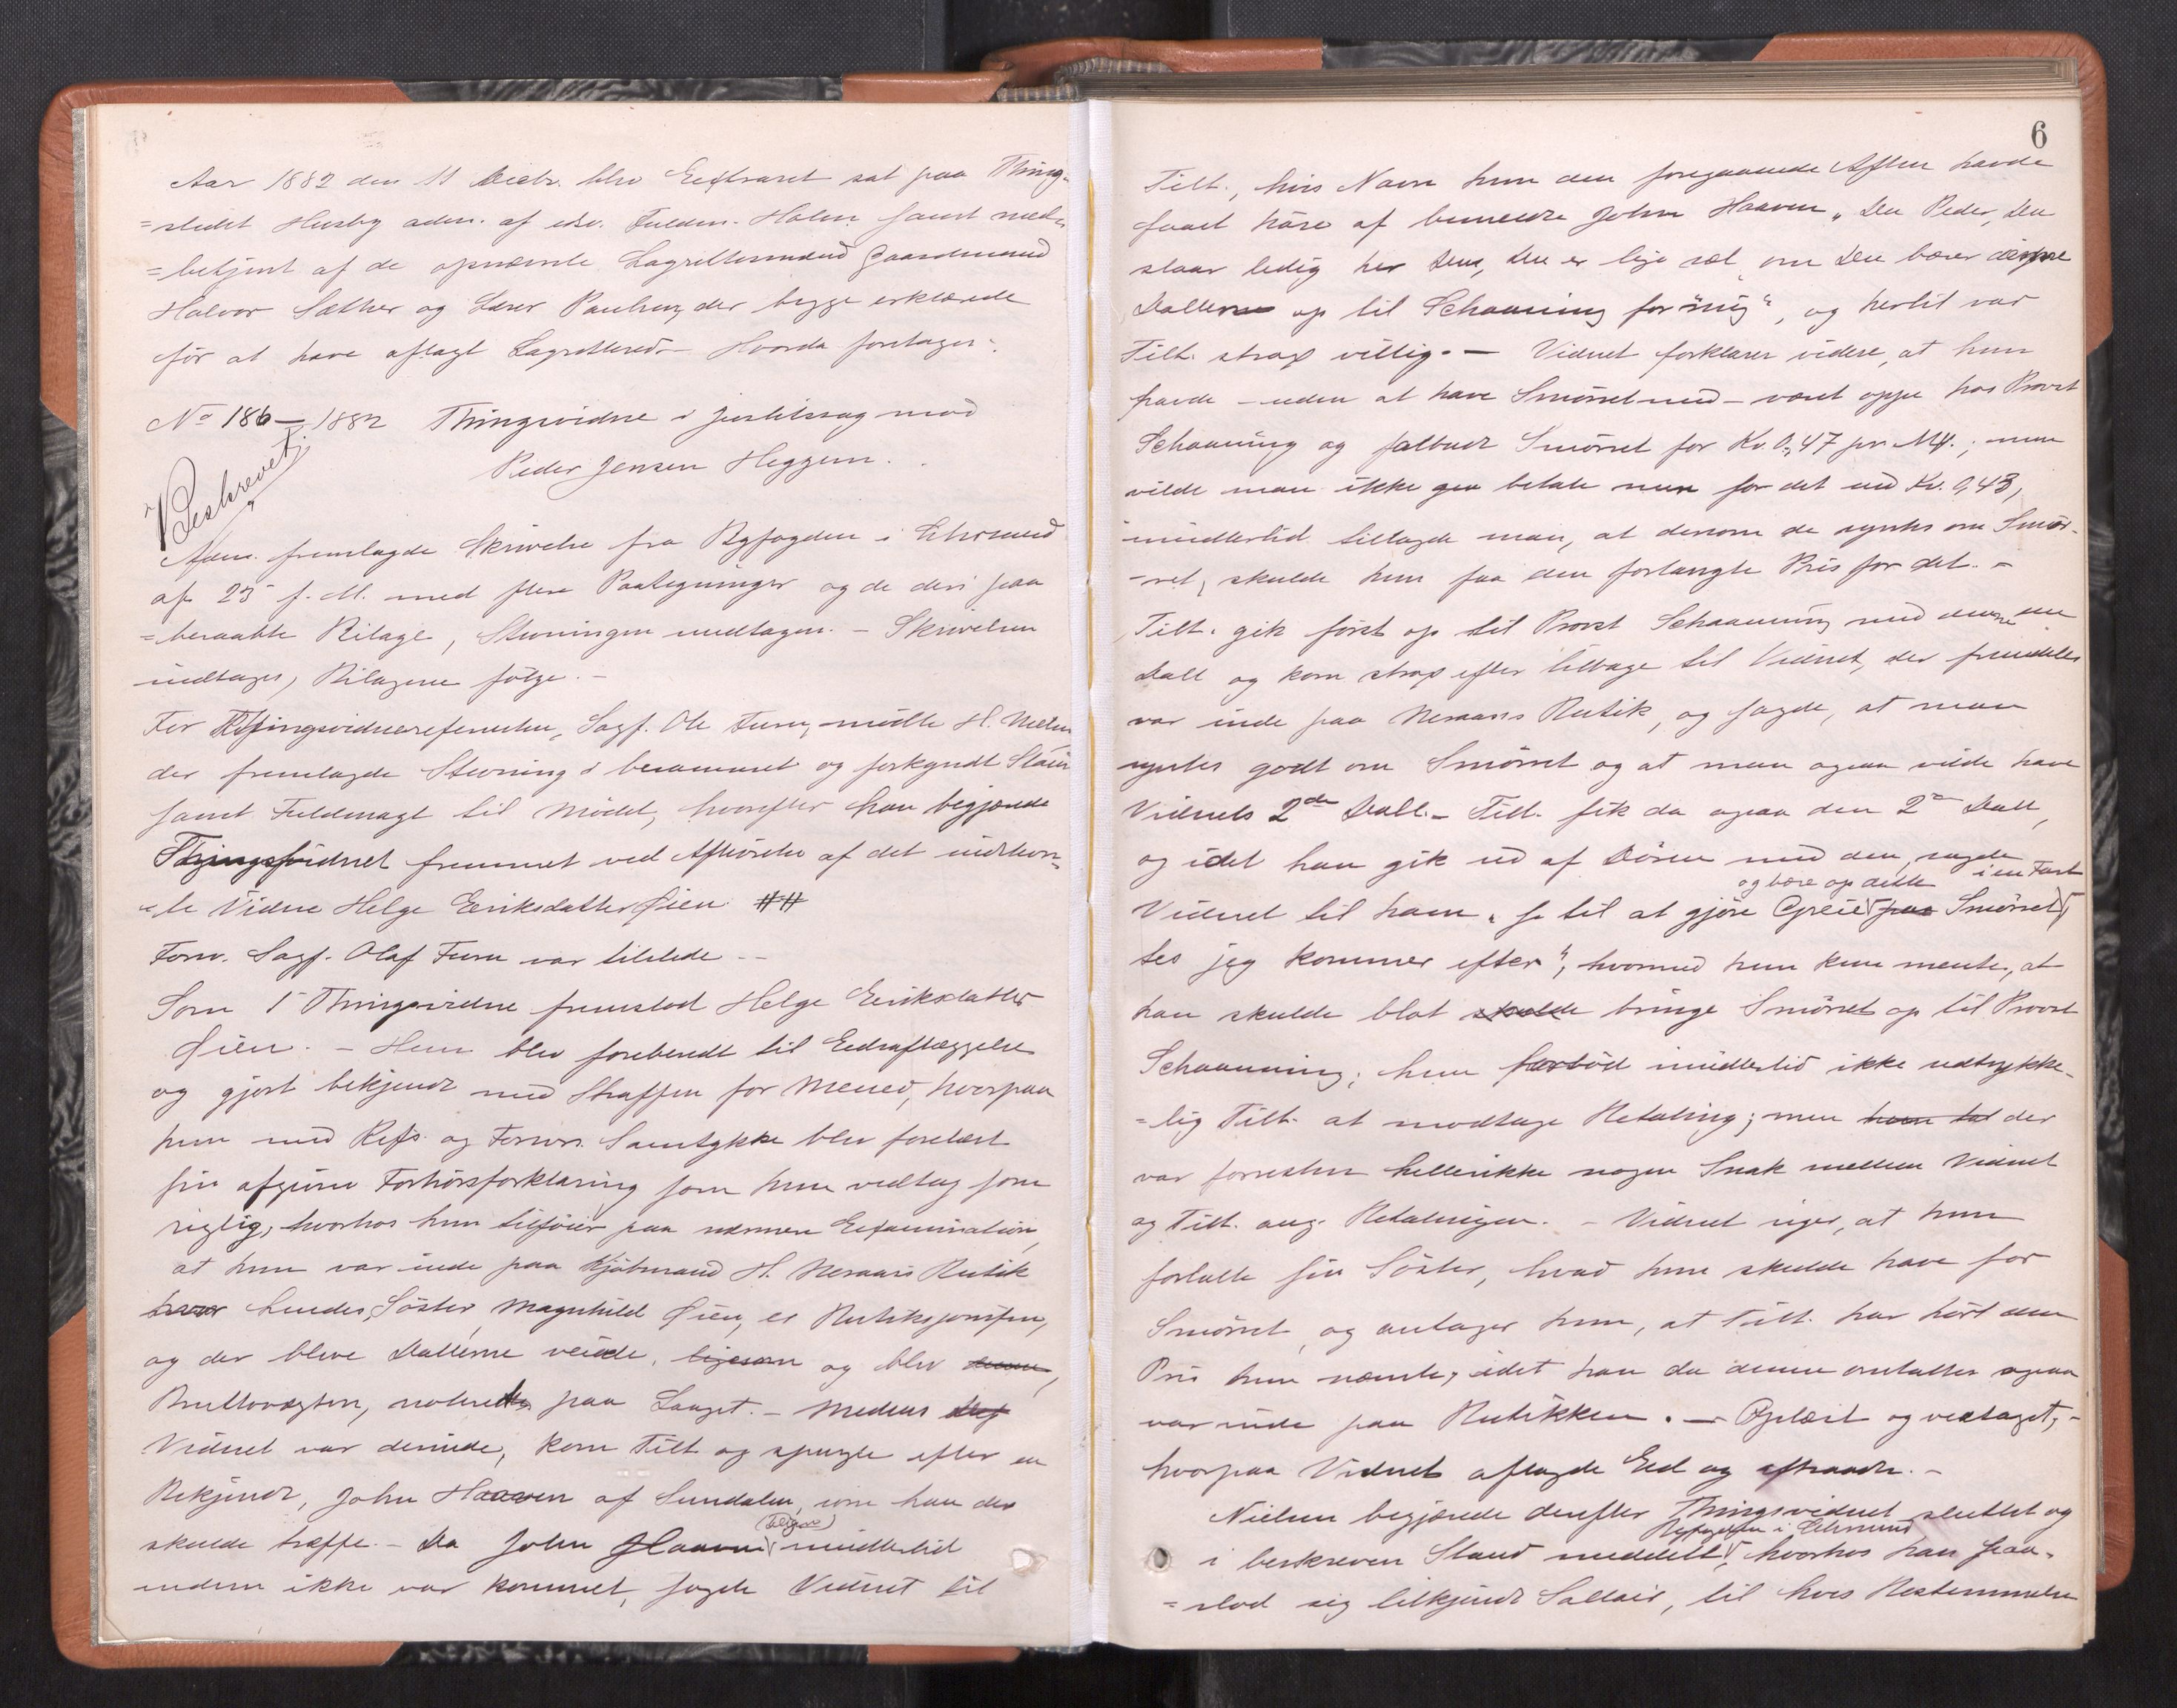 Aar 1882 den 11 Decbr. blev Extraret sat paa Thing-
=stedet Husby adm. af edsv. Fuldm. Holm samt med-
=betjent af de opnævnte Lagrettesmænd Gaardmænd
Halvor Sæther og Lars Paulsen, der begge erklærede
før at have aflagt Lagretteed. – Hvorda foretages:
No 186 – 1882 Thingsvidne i Justitssag mod
Peder Jensen Heggem.
Beskrevet.
Adm. fremlagde Skrivelse fra Byfogden i Chrsund
af 25 f. M. med flere Paategninger og de deri paa
=beraabte Bilage, Stevningen undtagen. – Skrivelsen
indtages, Bilagene følge. –
For Thingsvidnerefenten, Sagf. Ole Furu, mødte H. Nielsen
der fremlagde Stevning i berammet og forkyndt Stand
samt Fuldmagt til Mødet, hvorefter han begjærede
Thingsvidnet fremmet ved Afhørelse af det indstevn-
=te Vidne Helge Eriksdatter Øien
Forsv. Sagf. Olaf Furu var tilstede –
Som 1 Thingsvidne fremstod Helge Eriksdatter
Øien. – Hun blev foreberedt til Edsaflæggelse
og gjort bekjendt med Straffen for Mened, hvorpaa
hun med Refs. og Forsvs. Samtykke blev forelæst
sin afgivne Forhørsforklaring som hun vedtog som
rigtig, hvorhos hun tilføier paa nærmere Examination,
at hun var inde paa Kjøbmand H. Neraas's Butik
hvor hendes Søster, Magnhild Øien, er Butiksjomfru,
og der bleve Dallerne veiede, ligesom og blev
Bruttovægten, noteret paa Laaget. – Medens
Vidnet var derinde, kom Tilt og spurgte efter en
Bekjendt, John Haaven af Sundalen, som han der
skulde træffe. – Da John Haaven imidlertid
endnu ikke var kommet, sagde Vidnet til
6
Tilt., hvis Navn hun den foregaaende Aften havde
faaet høre af bemeldte John Haaven „Du Peder, Du
staar ledig her Du, Du er lige sæl om Du bærer disse
Dallerne op til Schaanning for mig“, og hertil var
Tilt. strax villig. – Vidnet forklarer videre, at hun
havde – uden at have Smørret med – været oppe hos Provst
Schaanning og falbudt Smørret for Kr. 0,47 pr. M.; men
vilde man ikke gaa betale mere for det end Kr. 0,43,
imidlertid tillagde man, at dersom de syntes om Smør-
-ret, skulde hun faa den forlangte Pris for det. –
Tilt. gik først op til Provst Schaanning med den ene
Dall og kom strax efter tilbage til Vidnet, der fremdeles
var inde paa Neraas's Butik, og sagde, at man
syntes godt om Smørret og at man ogsaa vilde have
Vidnets 2den Dall. – Tilt. fik da ogsaa den 2den Dall,
og idet han gik ud af Døren med den, sagde
og bære op dette i en Fart
Vidnet til ham „se til at gjøre Greie paa Smørret
tes jeg kommer efter“, hvormed hun kun mente, at
han skulde blot skulde bringe Smørret op til Provst
Schaanning; hun forbød imidlertid ikke udtrykke-
=lig Tilt. at modtage Betaling; men der
var forresten hellerikke nogen Snak mellem Vidnet
og Tilt. ang. Betalingen. – Vidnet siger, at hun
fortalte sin Søster, hvad hun skulde have for
Smørret, og antager hun, at Tilt. har hørt den
Pris hun nævnte, idet han da denne omtaltes ogsaa
var inde paa Butikken. – Oplæst og vedtaget, –
hvorpaa Vidnet aflagde Ed og aftraadte. –
Nielsen begjærede derefter Thingsvidnet sluttet og
Byfogden i Chrsund
i beskreven Stand meddelt, hvorhos han paa-
=stod sig tilkjendt Sallair, til hvis Bestemmelse